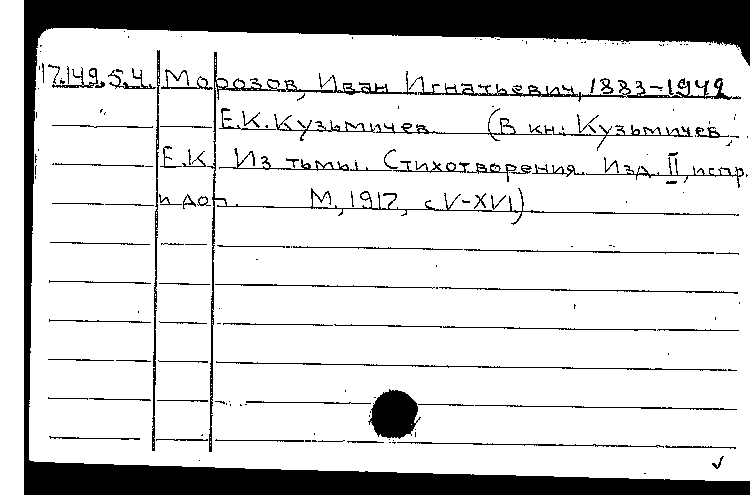 17.149.5.4. Морозов, Иван Игнатьевич, 1883-1942
Е.К.Кузьмичев. (В кн.: Кузьмичев,
Е.К. Из тьмы. Стихотворения. Изд. II, испр.
и доп. М., 1917, с V-XVI.)